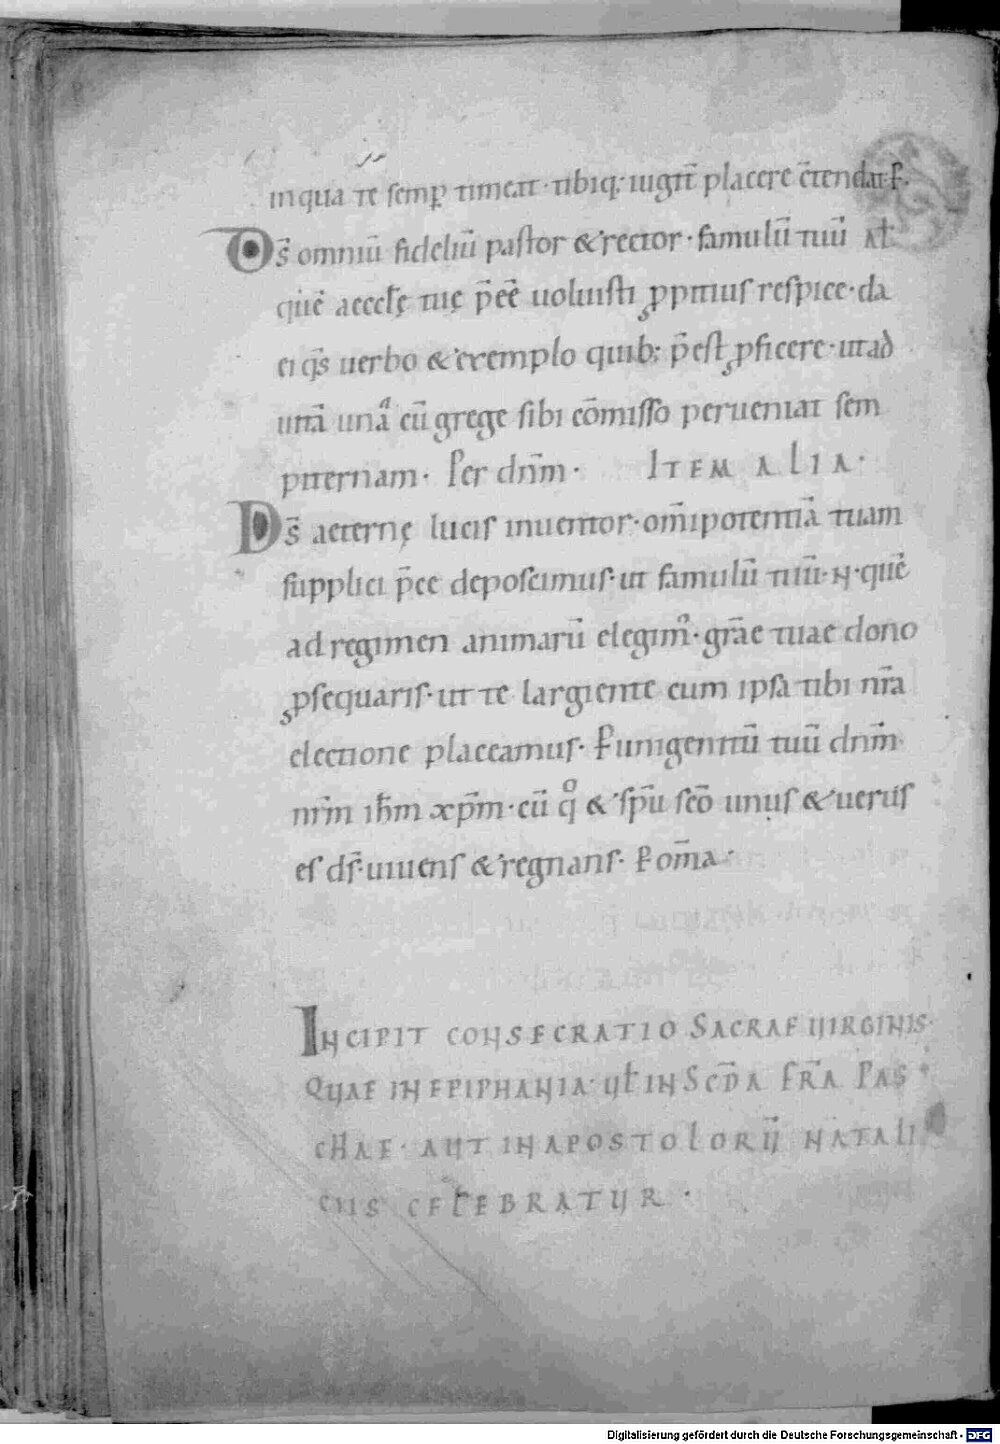 inqua te semp̄ timeat· tibiq; iugit̄ placere c̄tendat· P̱.
Ds̄ omniū fideliū pastor & rector· famulū tuū
quē aeccłę tuę p̄eē uoluisti ꝓpitius respice· da
ei q̄s uerbo & exemplo quib; p̄est ꝓficere· ut ad
uitā una cū grege sibi cōmisso perueniat sem
piternam· Per dnm̄· ITEM ALIA·
Ds̄ aeternę lucis inuentor· om̄ipotentiā tuam
supplici p̄ce deposcimus· ut famulū tuū· N· quē
ad regimen animarū elegim᷒· gr̄ae tuae dono
ꝓsequaris· ut te largiente cum ipsa tibi nr̄a
electione placeamus· P̱ unigenitū tuū dnm̄
nr̄m ih̄m xp̄m· cū q̊ & sp̄u sc̄o unus & uerus
es ds̄· uiuens & regnans· P̱ om̄a·
INCIPIT CONSECRATIO SACRAE UIRGINIS·
QUAE IN EPIPHANIA· UƗ IN SCD̄A FR̄A PAS
CHAE· AUT IN APOSTOLORŪ NATALI
CIIS CELEBRATUR·
Digitalisierung gefördert durch die Deutsche Forschungsgemeinschaft - DFG